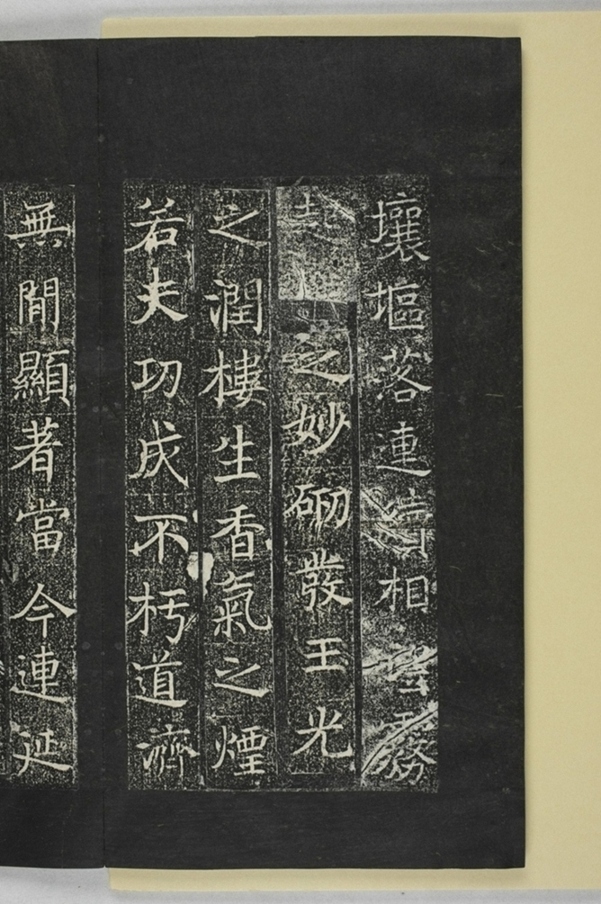 壤塸落連相霧
之妙砌發王光
之潤樓生香氣之煙
若夫功成不朽道濟
無間顯著當今連延